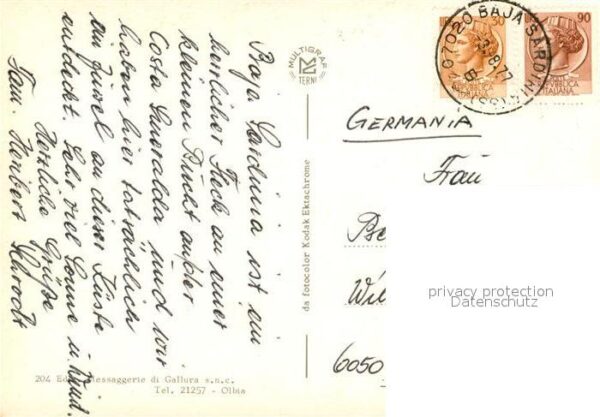 Baja Sardinia ist ein
herrlicher Fleck an einer
kleinen Bucht an der
Costa Smeralda und wir
haben hier tatsächlich
ein Juwel an dieser Küste
entdeckt. Sehr viel Sonne u. Wind.
Herzliche Grüße
Fam. Herbert
MULTIGRAF
TERNI
da fotocolor Kodak Ektachrome
204 Messaggerie di Gallura s.n.c.
Tel. 21257 - Olbia
30
90
07020 BAJA SARDINI
-8.77
ITALIANA
GERMANIA
Frau
6050
privacy protection
Datenschutz